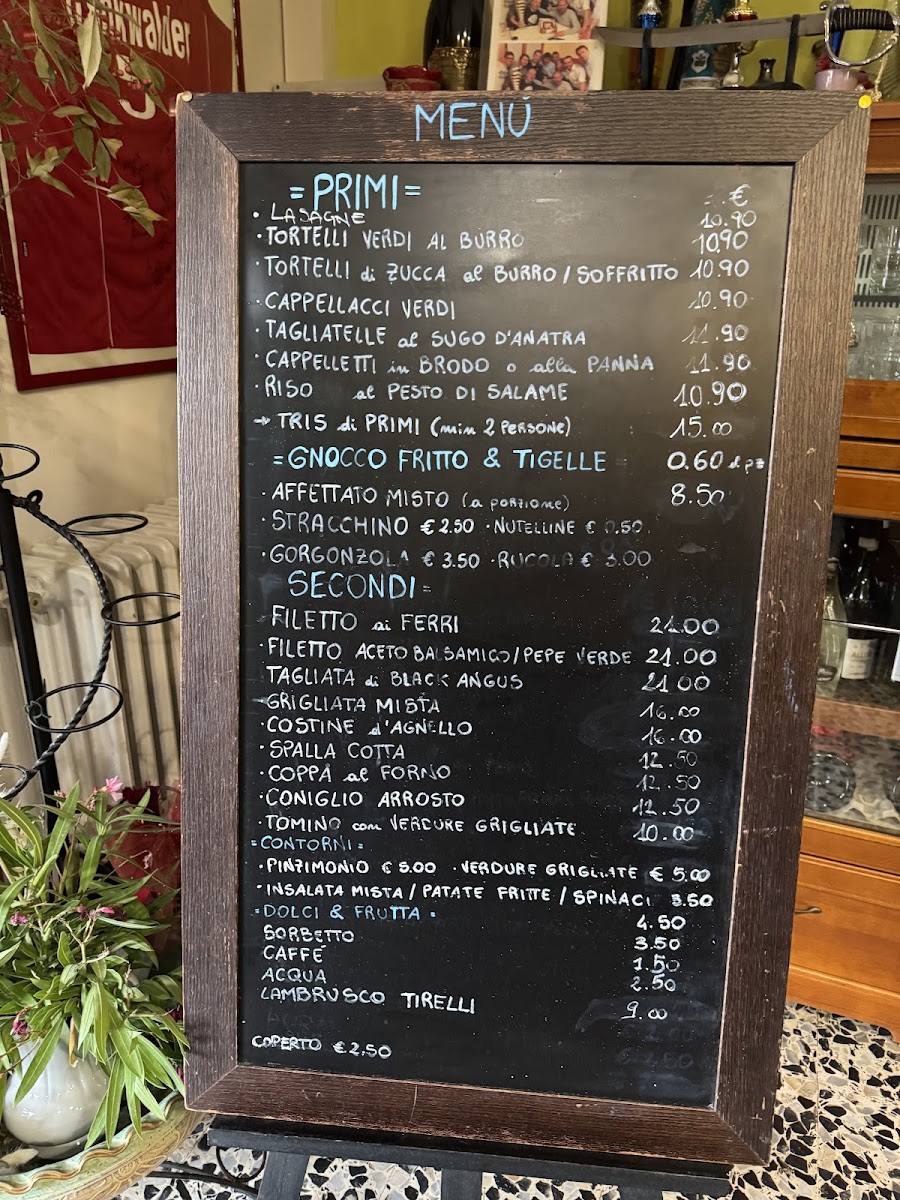 MENÚ
= PRIMI = €
• LASAGNE 10.90
• TORTELLI VERDI AL BURRO 10.90
• TORTELLI di ZUCCA al BURRO / SOFFRITTO 10.90
• CAPPELLACCI VERDI 10.90
• TAGLIATELLE al SUGO D'ANATRA 11.90
• CAPPELLETTI in BRODO o alla PANNA 11.90
• RISO al PESTO DI SALAME 10.90
→ TRIS di PRIMI (min 2 PERSONE) 15.00
= GNOCCO FRITTO & TIGELLE = 0.60 al pz
• AFFETTATO MISTO (a PORZIONE) 8.50
• STRACCHINO € 2.50 • NUTELLINE € 0.50
• GORGONZOLA € 3.50 • RUCOLA € 3.00
SECONDI =
• FILETTO ai FERRI 21.00
• FILETTO ACETO BALSAMICO / PEPE VERDE 21.00
TAGLIATA di BLACK ANGUS 21.00
- GRIGLIATA MISTA 16.00
• COSTINE d'AGNELLO 16.00
• SPALLA COTTA 12.50
• COPPA al FORNO 12.50
• CONIGLIO ARROSTO 12.50
• TOMINO con VERDURE GRIGLIATE 10.00
= CONTORNI =
• PINZIMONIO € 5.00 • VERDURE GRIGLIATE € 5.00
• INSALATA MISTA / PATATE FRITTE / SPINACI 3.50
= DOLCI & FRUTTA = 4.50
SORBETTO 3.50
CAFFÈ 1.50
ACQUA 2.50
LAMBRUSCO TIRELLI 9.00
COPERTO € 2.50